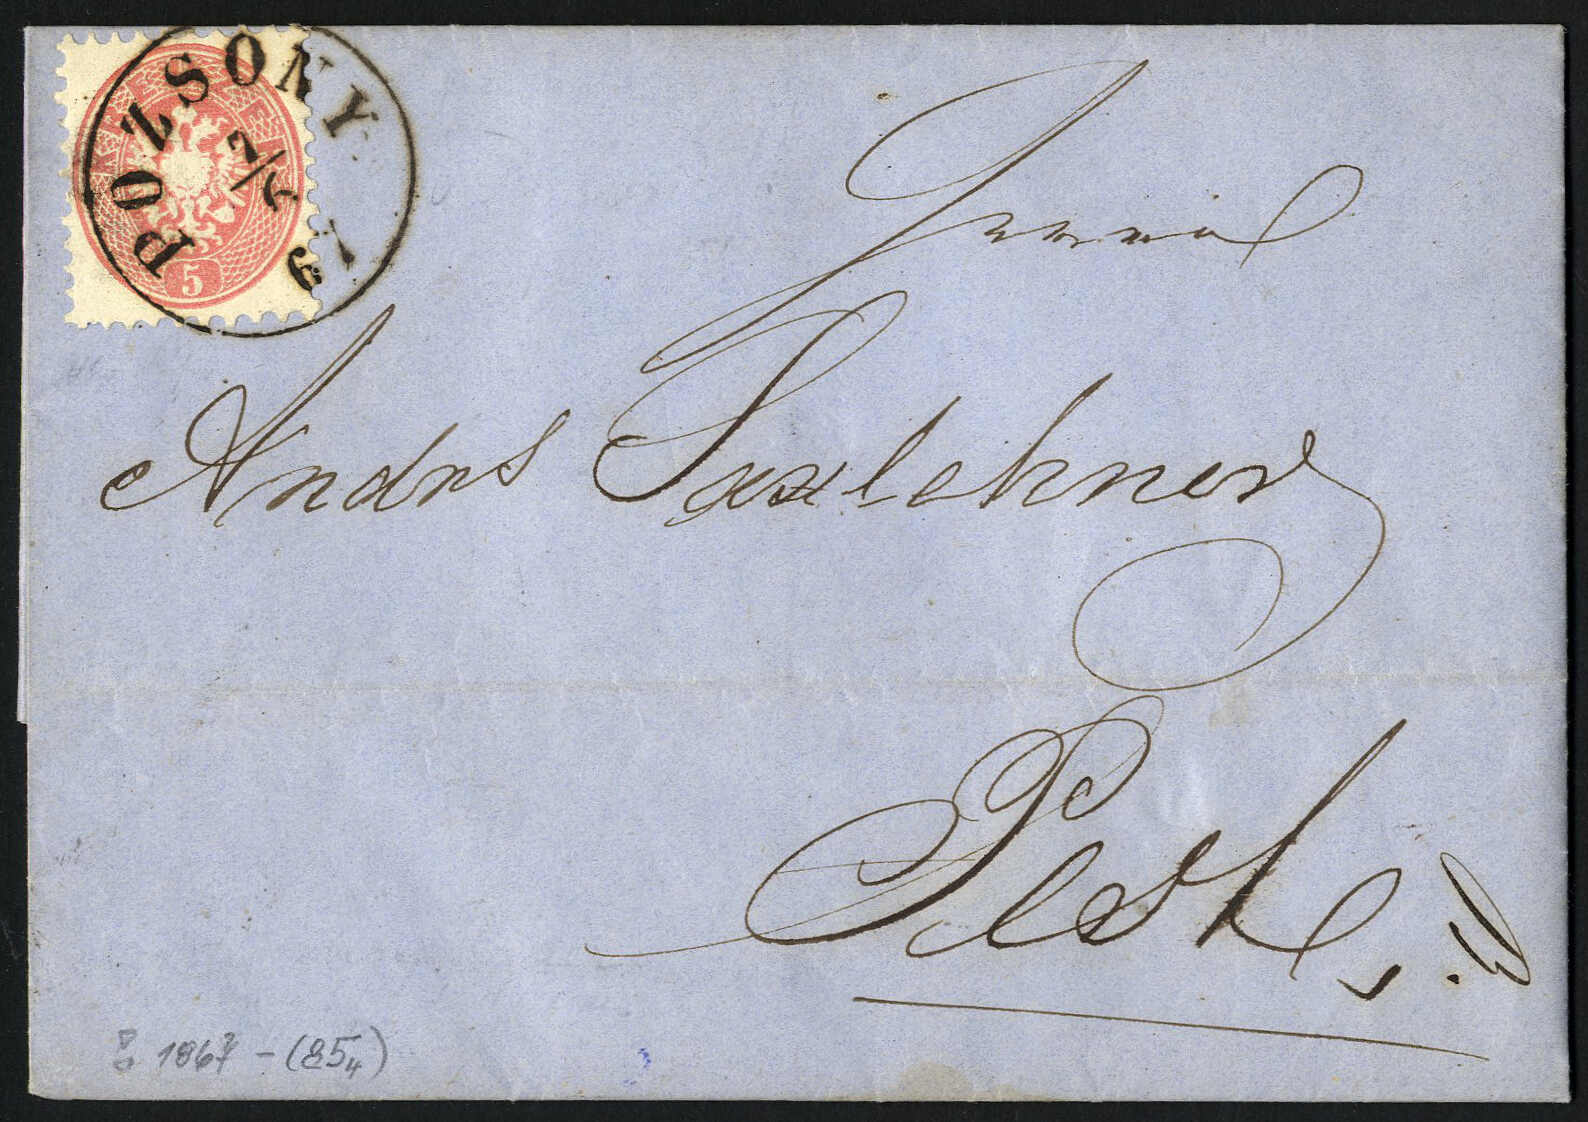 POZSONY
2/6
67
5
Andrs Saxlehner
Pest
1867 - (85 4)